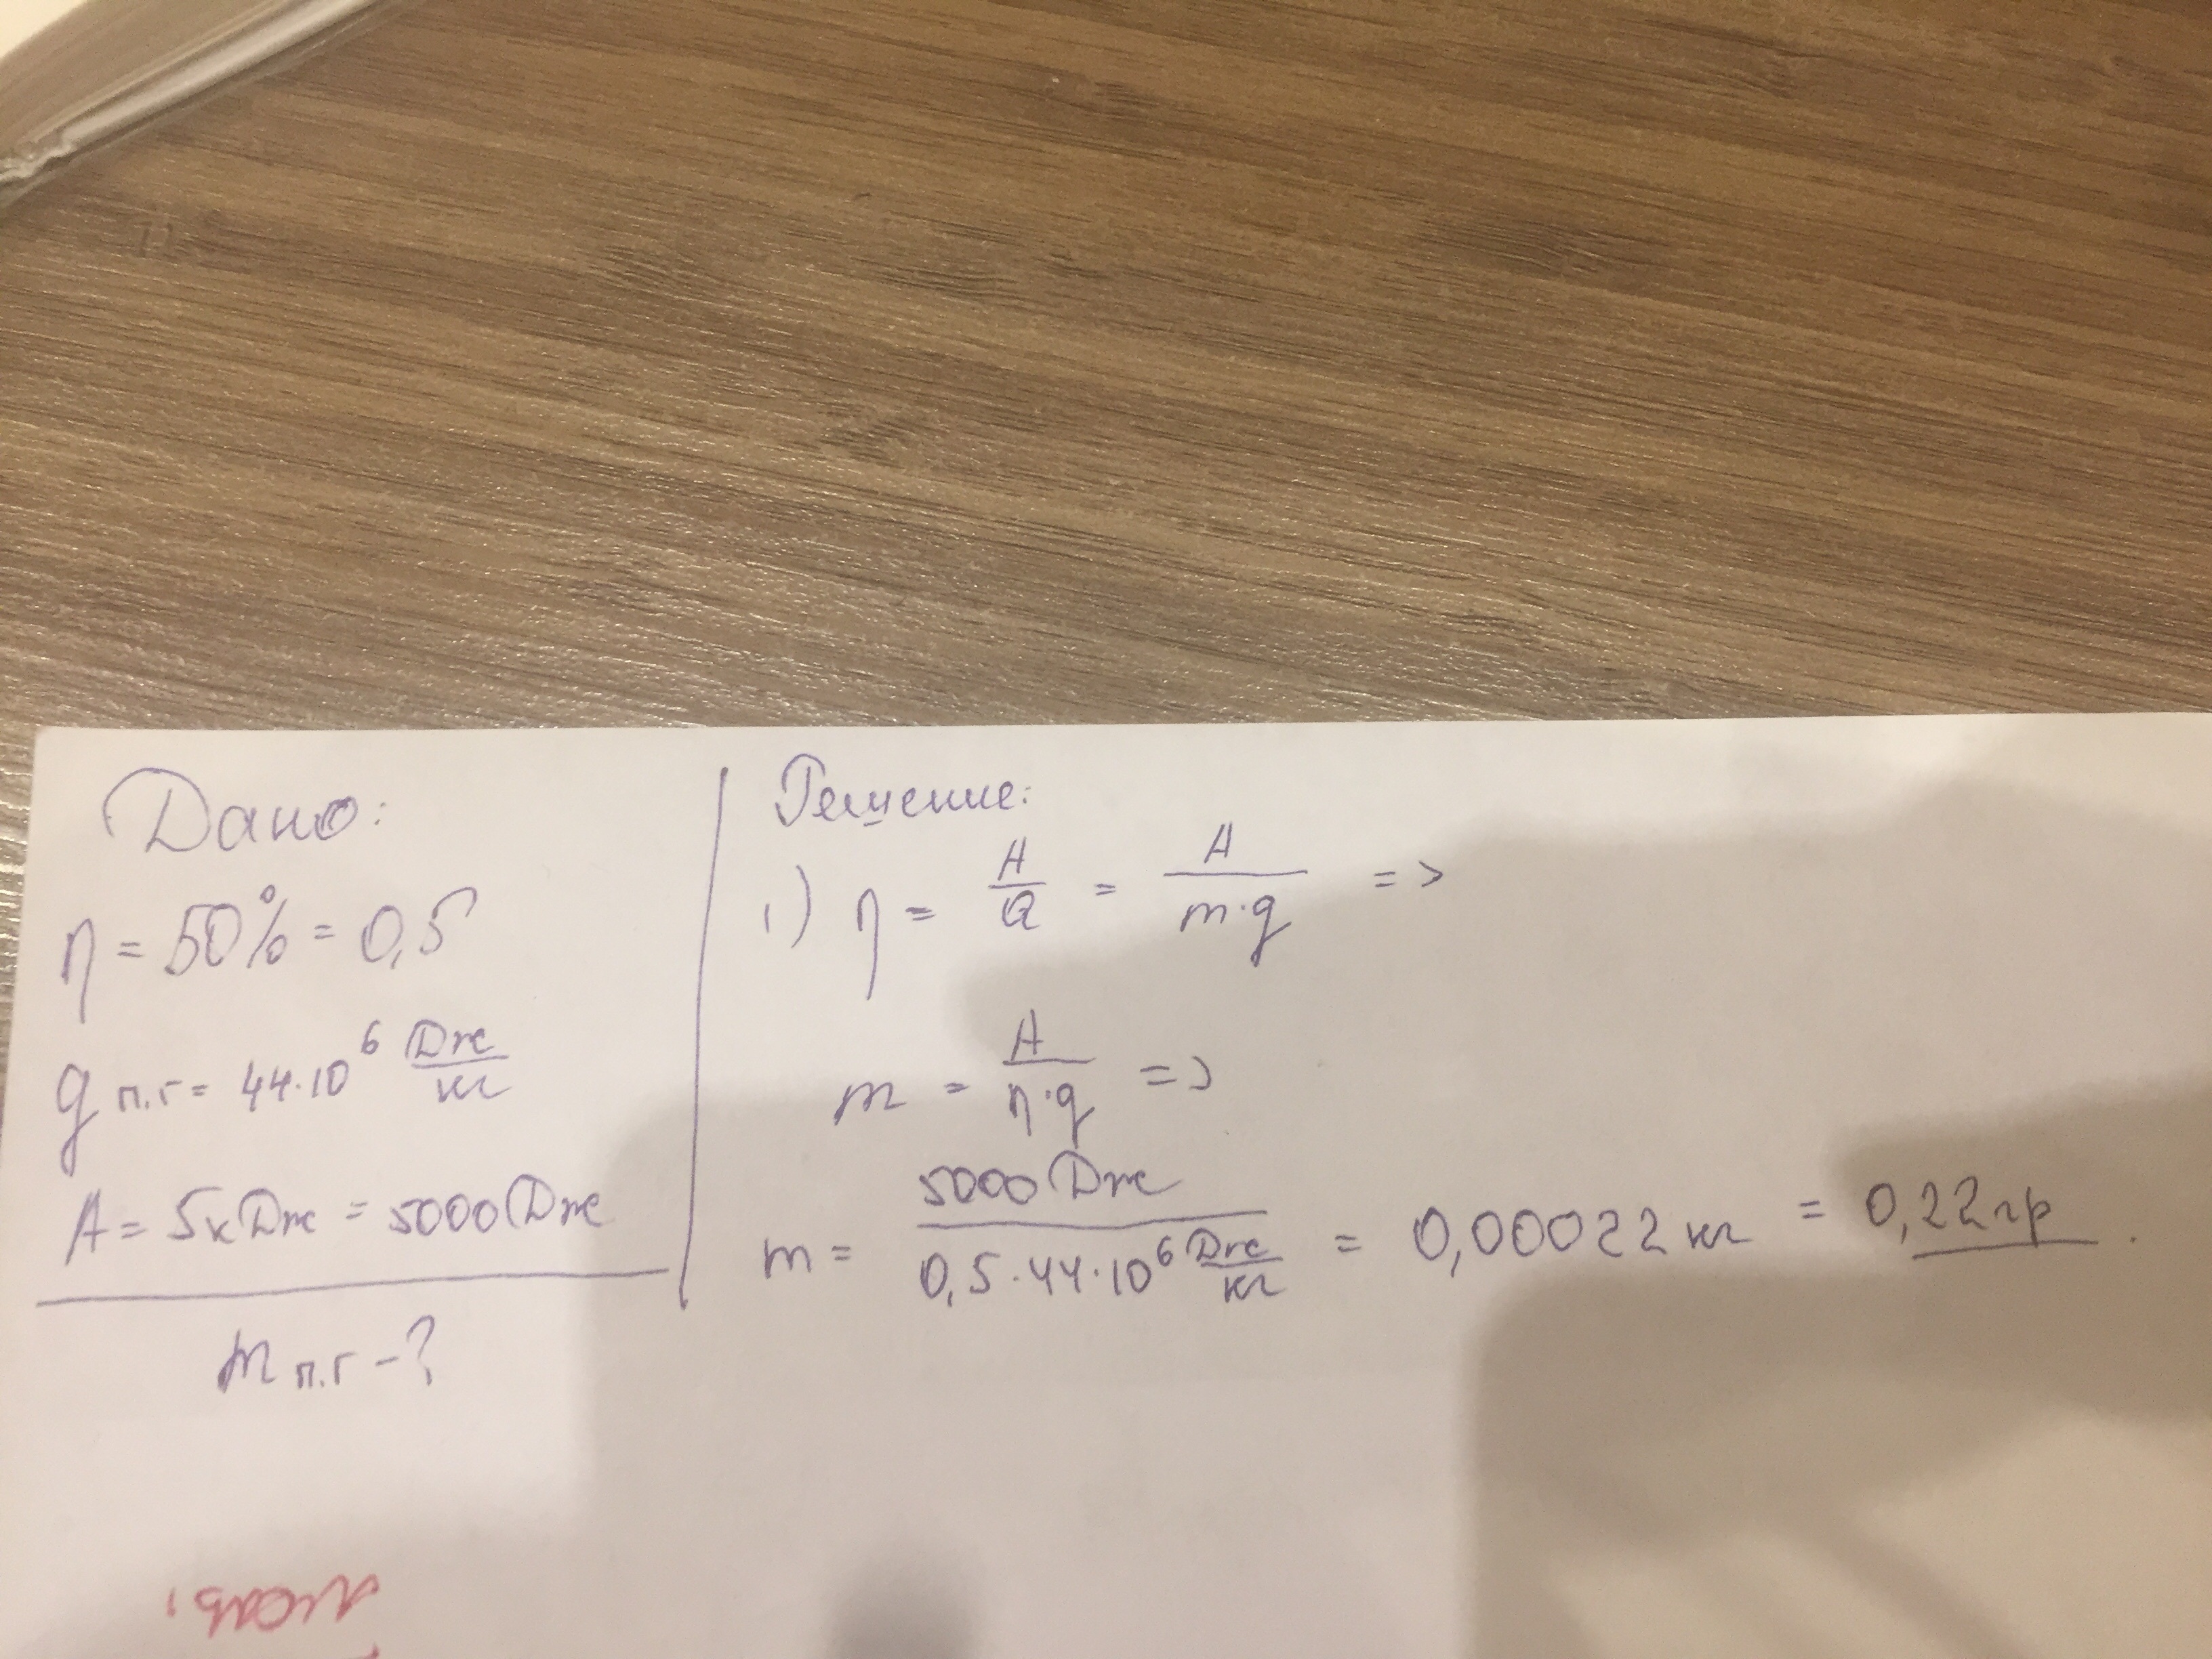 Дано:
η = 50% = 0,5
q п.г = 44·10⁶ Дж/кг
A = 5кДж = 5000 Дж
m п.г - ?
Решение:
1) η = A/Q = A/(m·q) =>
m = A/(η·q) =>
m = 5000 Дж/(0,5·44·10⁶ Дж/кг) = 0,00022 кг = 0,22 гр.